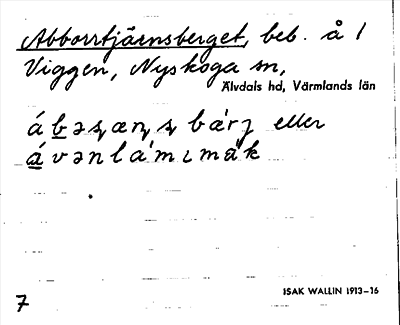 Abborrtjärnsberget, beb. å 1
Viggen, Nyskoga sn,
Älvdals hd, Värmlands län
eller
7
ISAK WALLIN 1913–16